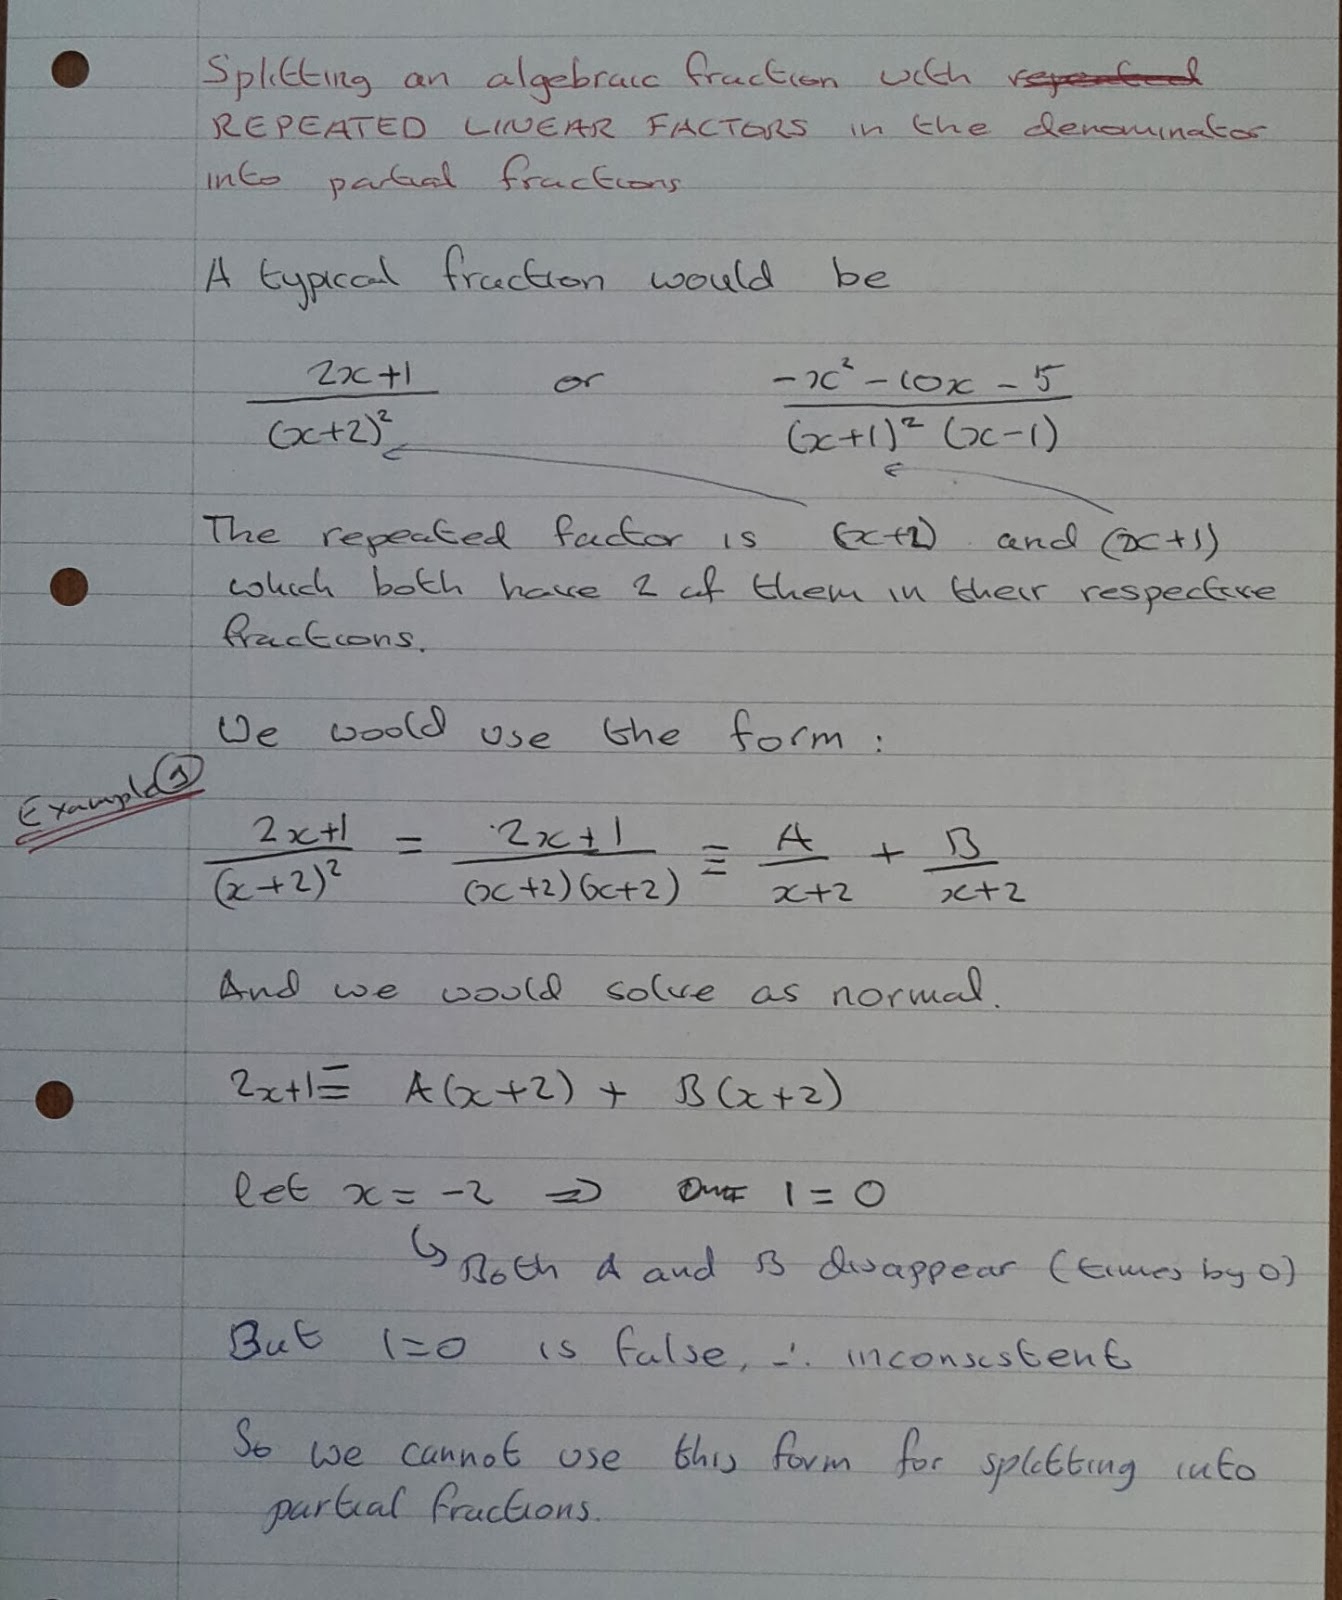 Splitting an algebraic fraction with repeated
REPEATED LINEAR FACTORS in the denominator
into partial fractions
A typical fraction would be
2x+1 / (x+2)² or -x² - 10x - 5 / (x+1)² (x-1)
The repeated factor is (x+2) and (x+1)
which both have 2 of them in their respective
fractions.
We would use the form:
Example 1
2x+1 / (x+2)² = 2x+1 / (x+2)(x+2) ≡ A / x+2 + B / x+2
And we would solve as normal.
2x+1 ≡ A(x+2) + B(x+2)
let x = -2 ⇒ 1 = 0
↳ Both A and B disappear (times by 0)
But 1=0 is false, ∴ inconsistent
So we cannot use this form for splitting into
partial fractions.